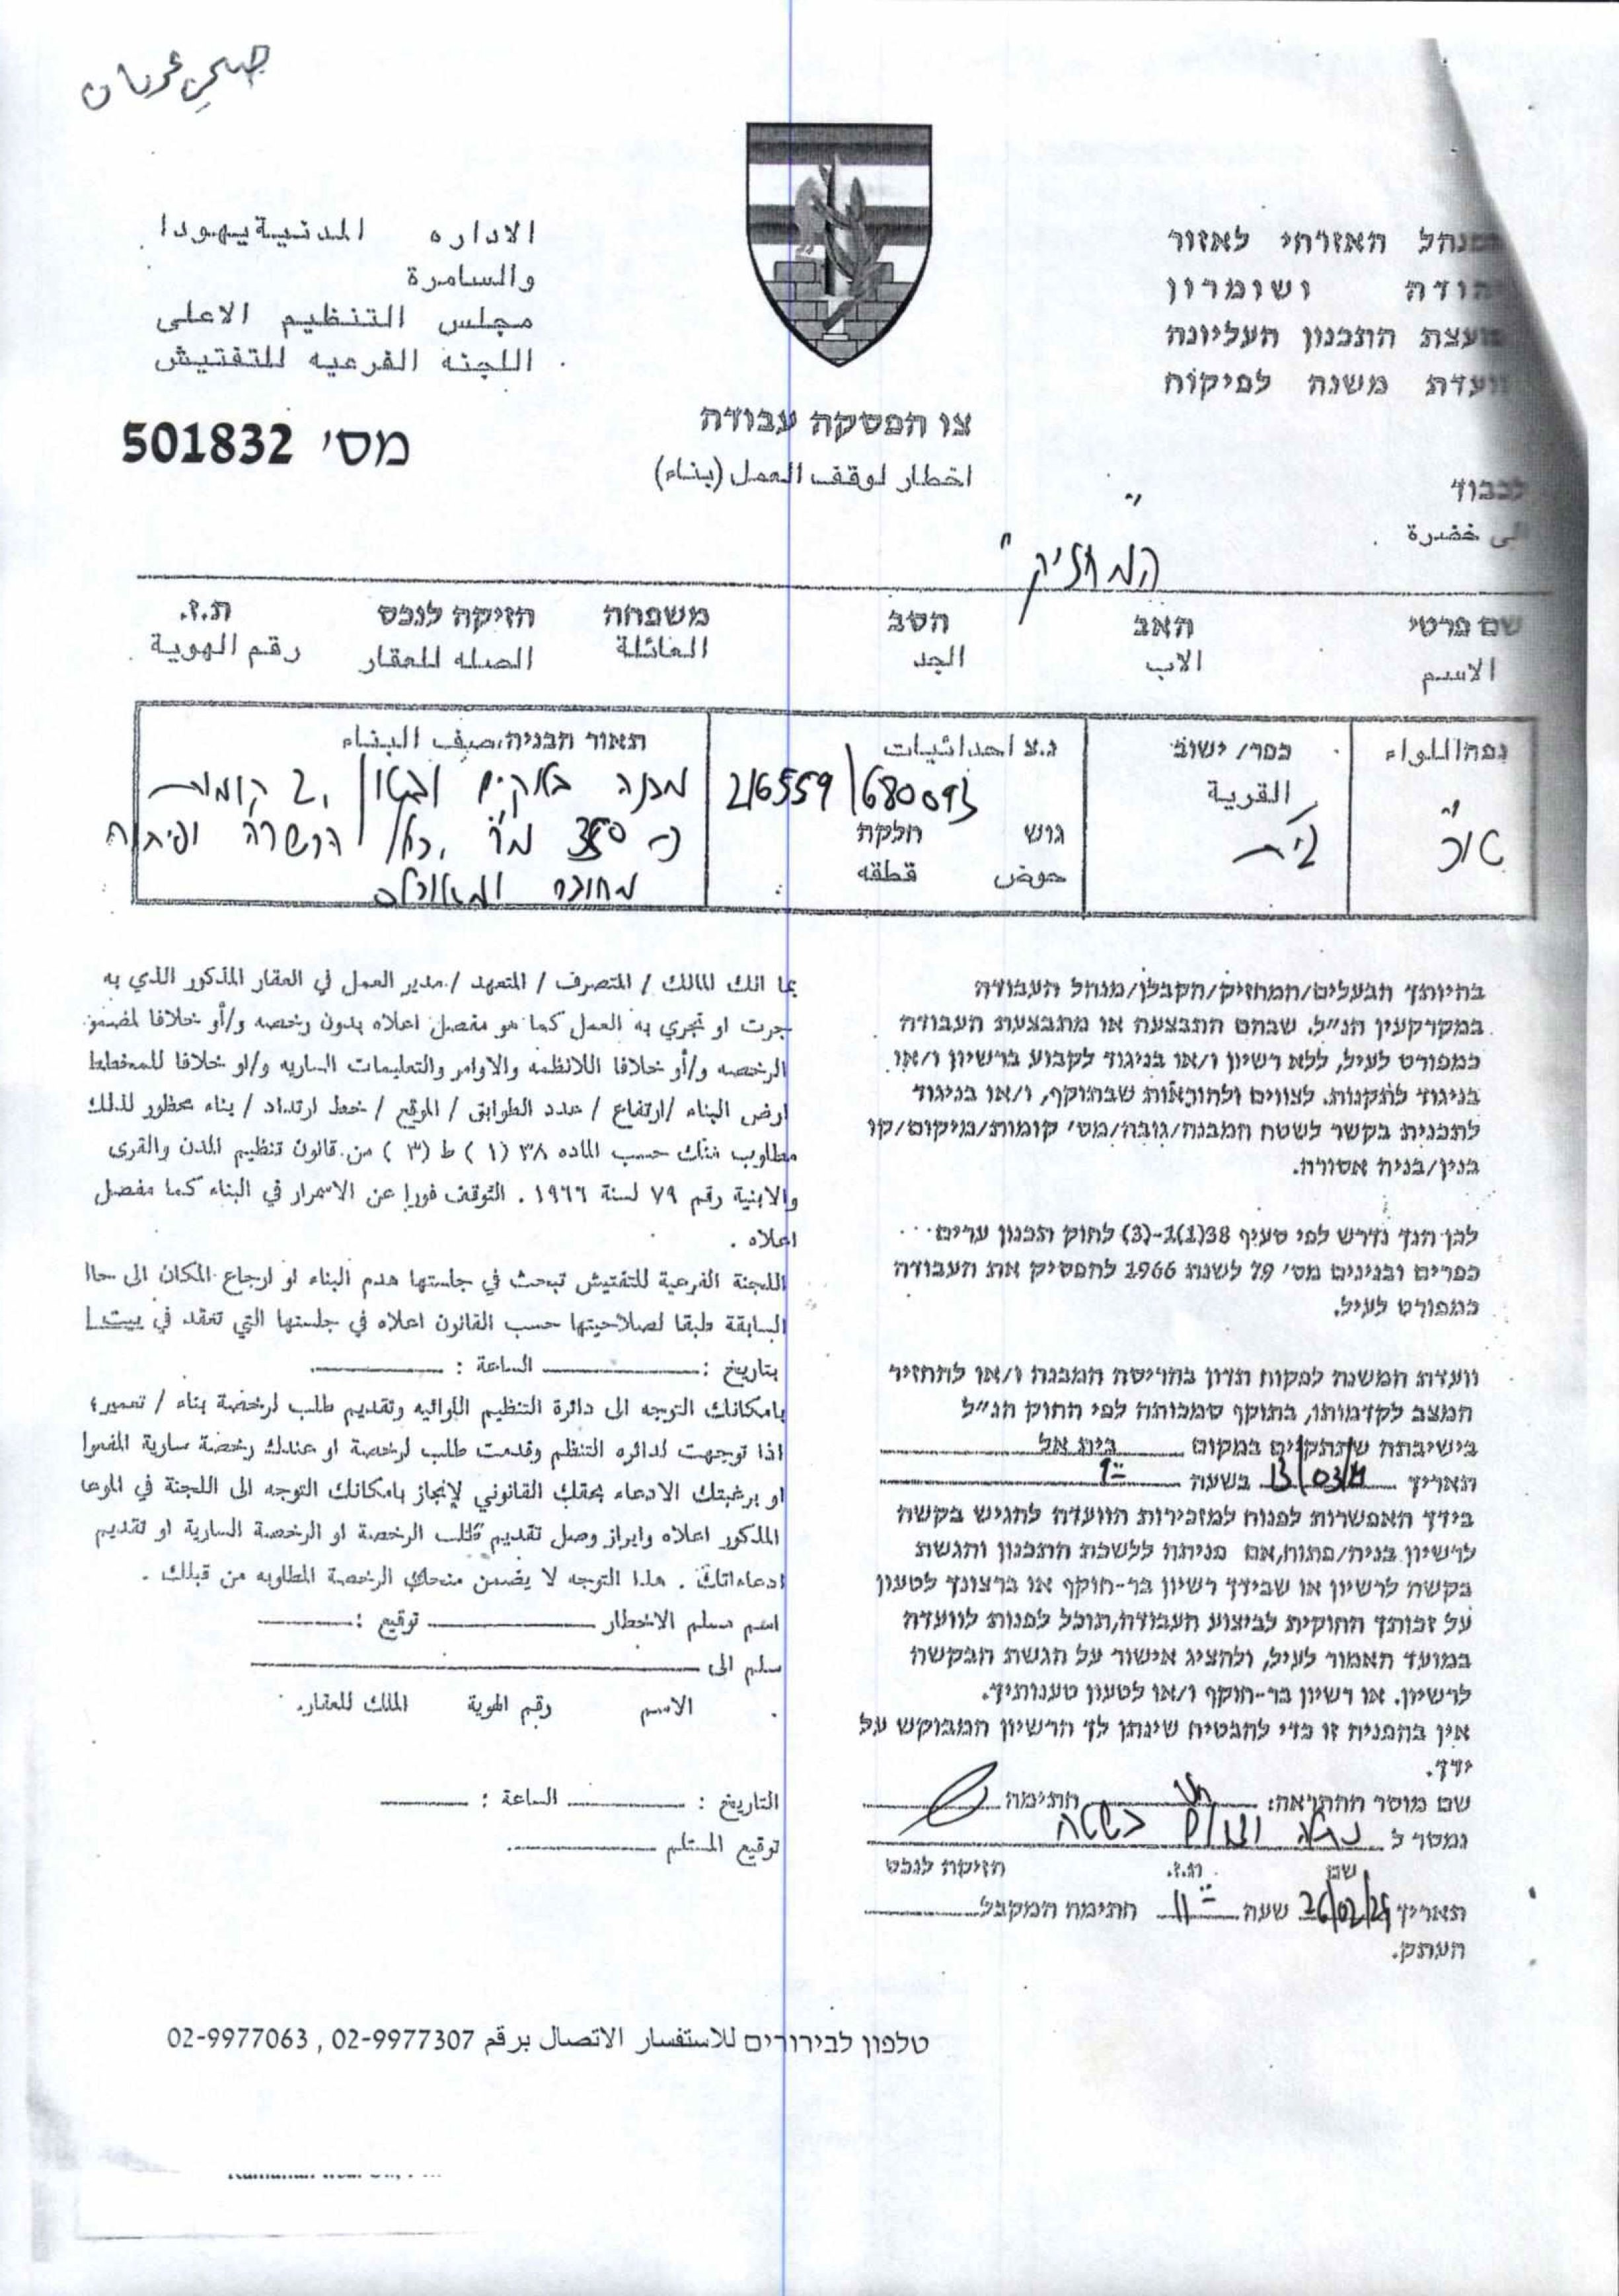 الاداره المدنية يهودا
والسامرة
مجلس التنظيم الاعلى
اللجنه الفرعيه للتفتيش
מנהל האזרחי לאזור
יהודה ושומרון
מועצת התכנון העליונה
וועדת משנה לפיקוח
מס׳ 501832
צו הפסקה עבודה
اخطار لوقف العمل (بناء)
לכבוד
الى خضرة
" המחזיק "
שם פרטי האב הסב משפחה הזיקה לנכס ת.ז.
الاسم الاب الجد العائلة الصله للعقار رقم الهوية
נפה/اللواء כפר/ישוב נ.צ احداثيات תאור הבניה/صيف البناء
القرية
216559/680093
גוש חלקה
حوض قطقه
מבנה
2 קומות
כ- 350 מ"ר
הכשרה ופיתוח
מחובר
בהיותך הבעלים/המחזיק/הקבלן/מנהל העבודה
במקרקעין הנ״ל, שבהם התבצעה או מתבצעת העבודה
כמפורט לעיל, ללא רשיון ו/או בניגוד לקבוע ברשיון ו/או
בניגוד לתקנות. לצווים ולהוראות שבתוקף, ו/או בניגוד
לתכנית בקשר לשטח המבנה/גובה/מס׳ קומות/מיקום/קו
בנין/בניה אסורה.
לכן הנך נדרש לפי סעיף 38(1)1-(3) לחוק תכנון ערים
כפרים ובנינים מס׳ 79 לשנת 1966 להפסיק את העבודה
כמפורט לעיל.
וועדת המשנה לפקוח תדון בהריסת המבנה ו/או להחזיר
המצב לקדמותו, בתוקף סמכותה לפי החוק הנ״ל
בישיבתה שתתקיים במקום בית אל
תאריך 13/03/24 בשעה 9:00
בידך האפשרות לפנות למזכירות הוועדה להגיש בקשה
לרשיון בניה/פתוח,אם פניתה ללשכת התכנון והגשת
בקשה לרשיון או שבידך רשיון בר-תוקף או ברצונך לטעון
על זכותך החוקית לביצוע העבודה,תוכל לפנות לוועדה
במועד האמור לעיל, ולהציג אישור על הגשת הבקשה
לרשיון. או רשיון בר-תוקף ו/או לטעון טענותיך.
אין בהפניה זו כדי להבטיח שינתן לך הרשיון המבוקש על
ידך.
שם מוסר ההתראה: חתימה
נמסר ל
שם ת.ז. הזיקה לנכס
תאריך 26/02/24 שעה 11:00 חתימת המקבל
העתק.
بما انك المالك / المتصرف / المتعهد / مدير العمل في العقار المذكور الذي به
جرت او تجري به العمل كما هو مفصل اعلاه بدون رخصه و/أو خلافا لمضمو
الرخصه و/أو خلافا اللانظمه والاوامر والتعليمات الساريه و/او خلافا للمخطط
ارض البناء /ارتفاع / عدد الطوابق / الموقع / خط ارتداد / بناء محظور لذلك
مطلوب منك حسب الماده ٣٨ (١) ط (٣) من قانون تنظيم المدن والقرى
والابنية رقم ٧٩ لسنة ١٩٦٦ . التوقف فورا عن الاسمرار في البناء كما مفصل
اعلاه .
اللجنة الفرعية للتفتيش تبحث في جلستها هدم البناء او ارجاع المكان الى حالا
السابقة طبقا لصلاحيتها حسب القانون اعلاه في جلستها التي تعقد في بيت ا
بتاريخ : الساعة :
بامكانك التوجه الى دائرة التنظيم اللوائيه وتقديم طلب لرخصة بناء / تعمير؛
اذا توجهت لدائره التنظم وقدمت طلب لرخصة او عندك رخصة سارية المفعوا
او برغبتك الادعاء بحقك القانوني لإنجاز بامكانك التوجه الى اللجنة في الموعا
المذكور اعلاه وابراز وصل تقديم طلب الرخصة او الرخصة السارية او تقديم
ادعاءاتك . هذا التوجه لا يضمن منحك الرخصة المطلوبه من قبلك .
اسم مسلم الاخطار توقيع :
سلم الى
الاسم رقم الهوية الملك للعقار.
التاريخ : الساعة :
توقيع المستلم
טלפון לבירורים للاستفسار الاتصال برقم 02-9977307 , 02-9977063